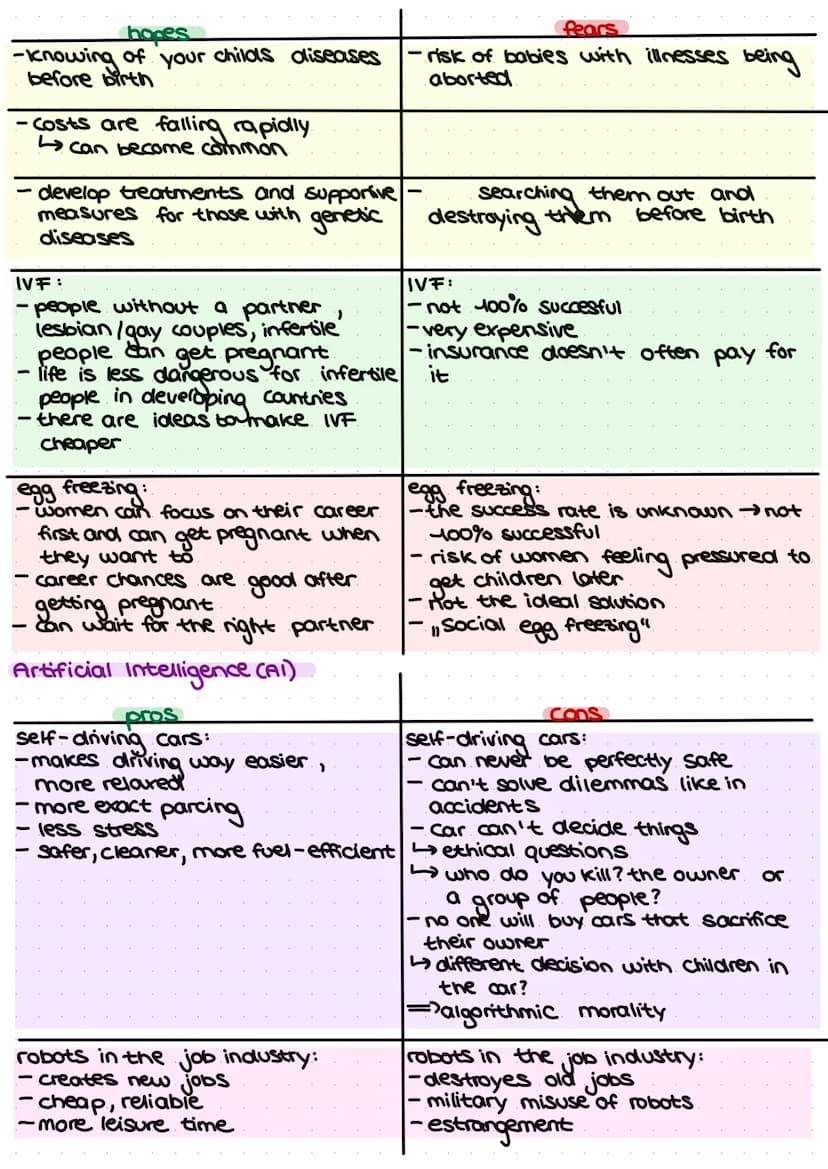 hopes
fears
-knowing of your childs diseases
before birth
- risk of babies with illnesses being
aborted
- costs are falling rapidly
↳ can become common
- develop treatments and supportive
measures for those with genetic
diseases
- searching them out and
destroying them before birth
IVF:
- people without a partner,
lesbian/gay couples, infertile
people can get pregnant
- life is less dangerous for infertile
people in developing countries
- there are ideas to make IVF
cheaper
IVF:
- not 100% succesful
- very expensive
- insurance doesn't often pay for
it
egg freezing:
- women can focus on their career
first and can get pregnant when
they want to
- career chances are good after
getting pregnant
- can wait for the right partner
egg freezing:
- the success rate is unknown → not
100% successful
- risk of women feeling pressured to
get children later
- not the ideal solution
- „social egg freezing"
Artificial Intelligence (AI)
pros
cons
self-driving cars:
- makes driving way easier,
more relaxed
- more exact parcing
- less stress
- safer, cleaner, more fuel-efficient
self-driving cars:
- can never be perfectly safe
- can't solve dilemmas like in
accidents
- car can't decide things
↳ ethical questions
↳ who do you kill? the owner or
a group of people?
- no one will buy cars that sacrifice
their owner
↳ different decision with children in
the car?
=> algorithmic morality
robots in the job industry:
- creates new jobs
- cheap, reliable
- more leisure time
robots in the job industry:
- destroyes old jobs
- military misuse of robots
- estrangement